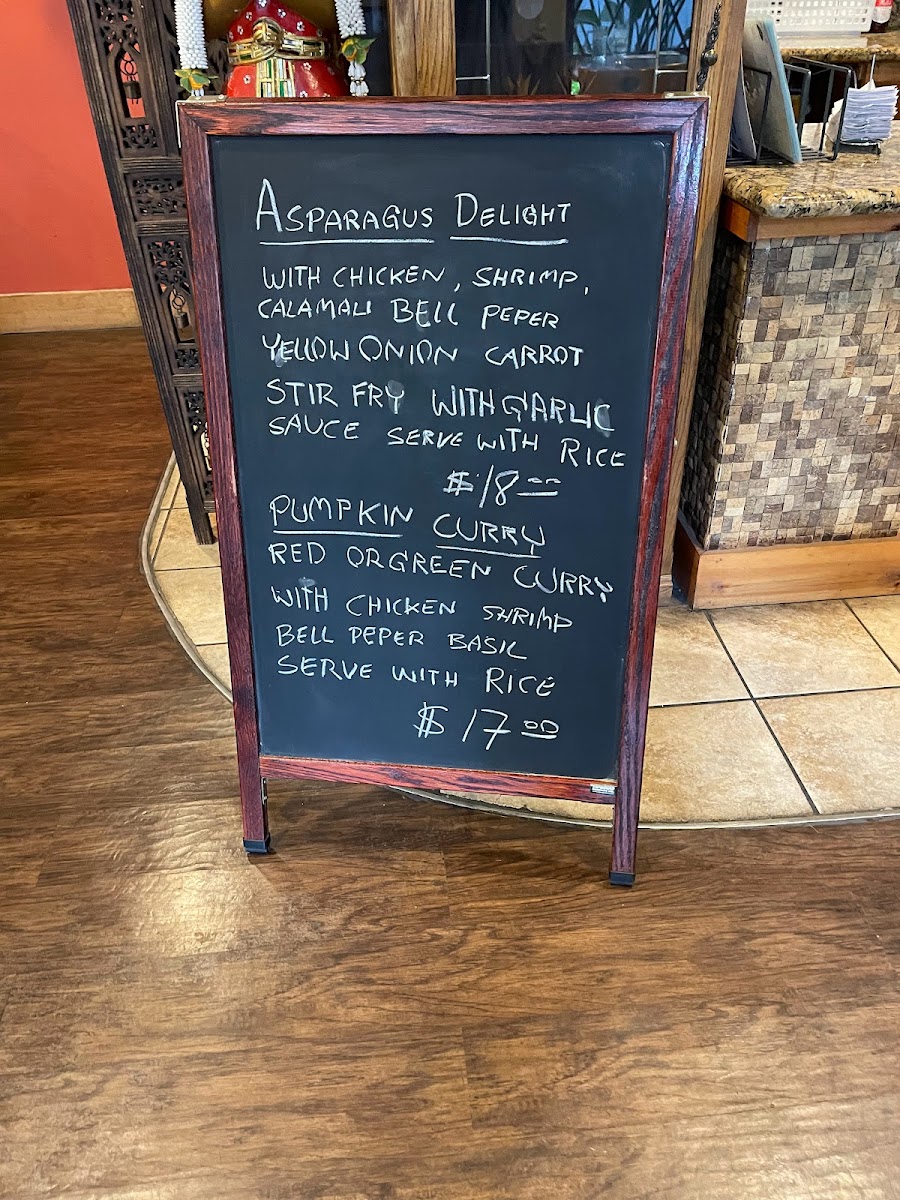 ASPARAGUS DELIGHT
WITH CHICKEN, SHRIMP,
CALAMALI BELL PEPER
YELLOW ONION CARROT
STIR FRY WITH GARLIC
SAUCE SERVE WITH RICE
$18.00
PUMPKIN CURRY
RED OR GREEN CURRY
WITH CHICKEN SHRIMP
BELL PEPER BASIL
SERVE WITH RICE
$17 00